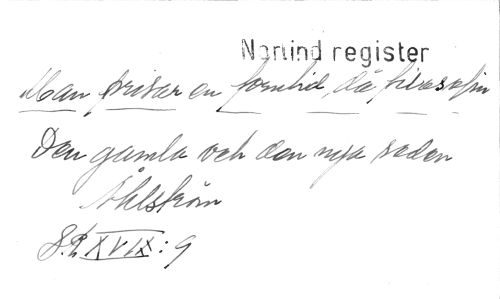 Norlind register
Man prisar en forntid, då filosofin
Den gamla och den nya seden
Åhlström
S.P. XVIX: 9